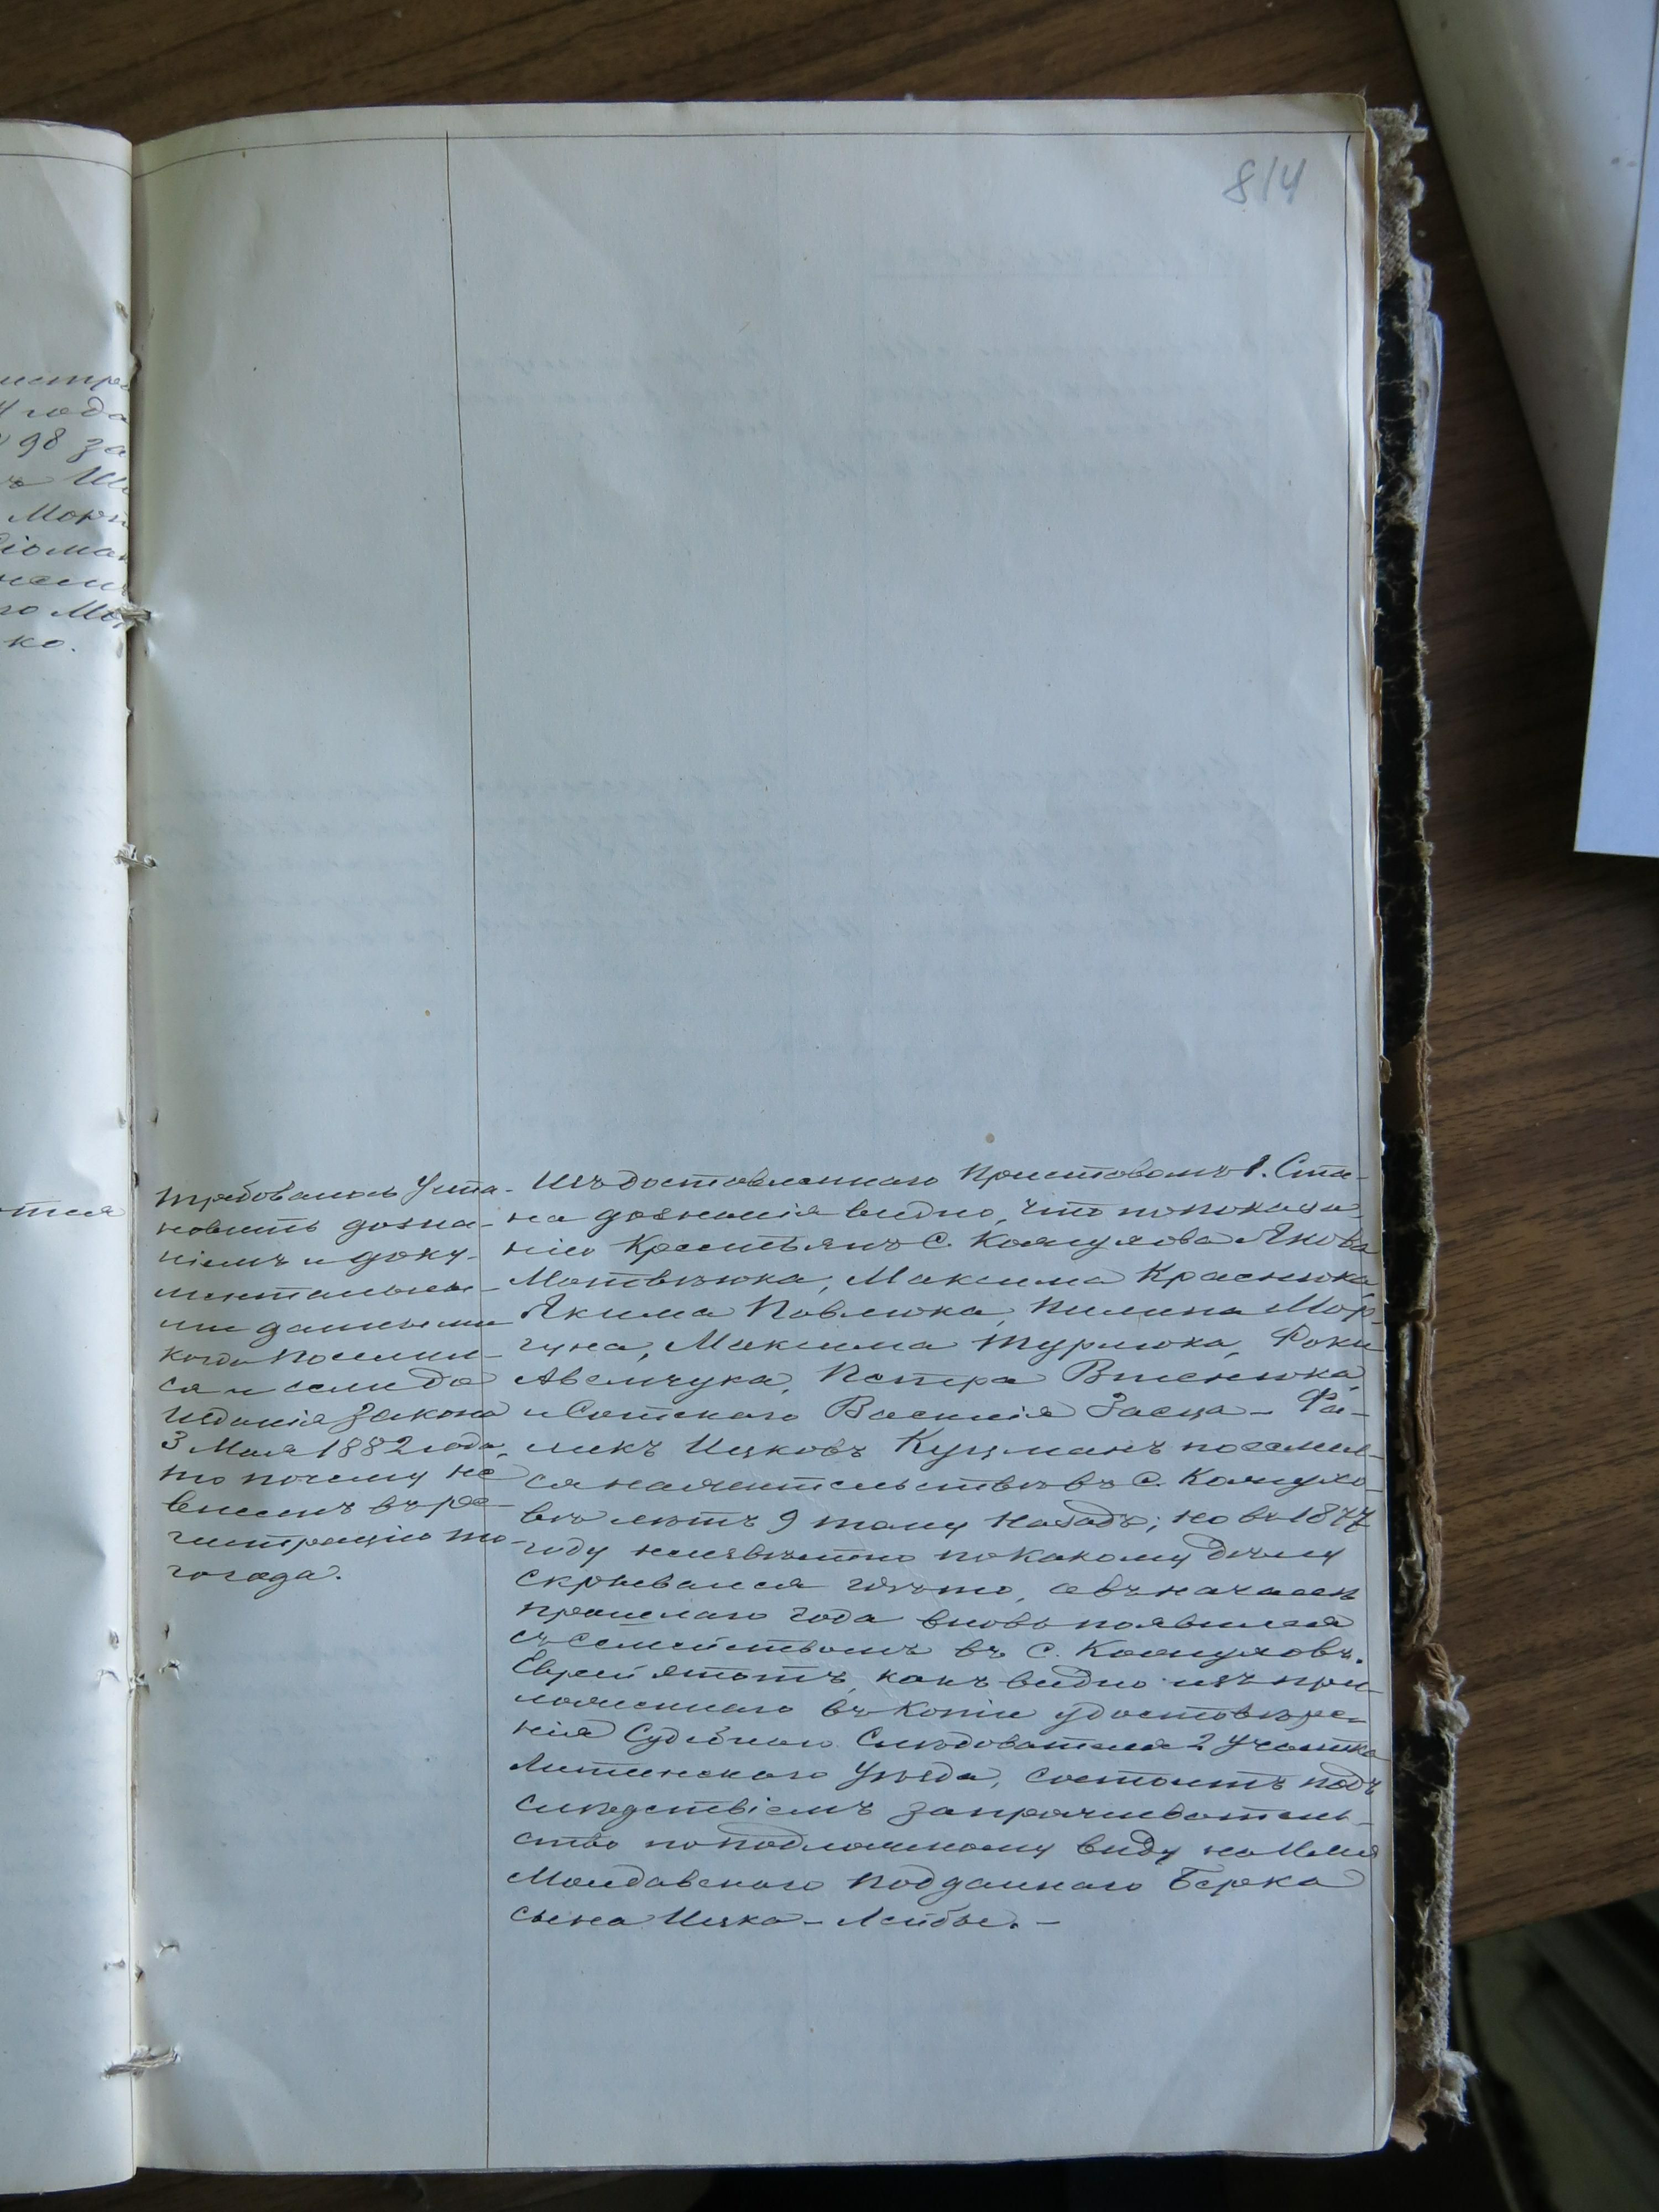 814
истре
4 года
98 за
Морт
ко.
тся
требовалось Уста-
новить дозна-
ніемъ и доку-
ментальны-
ми данными
когда поселил-
ся и если до
Изданія Закона
3 Мая 1882 года,
то почему не
внесенъ въ ре-
гистрацію то-
го года.
Изъ доставленнаго Приставомъ 1. Ста-
на дознанія видно, что по показа-
нію Крестьянъ С. Кожухова Якова
Матвѣюка, Максима Краснюка,
Якима Павлюка, Пилипа Мор-
гуна, Максима Турлюка, Фоки
Авелчука, Петра
и Сотскаго Василія Заеца – Фа-
ликъ Ицковъ Куцманъ поселил-
ся на жительство въ С. Кожухо-
вѣ лѣтъ 9 тому назадъ; но въ 1877
году неизвѣстно по какому дѣлу
скрывался гдѣ то, а въ началѣ
прошлаго года вновь появился
съ семействомъ въ С. Кожуховѣ.
Еврей этотъ, какъ видно изъ при-
ложеннаго въ копіи удостовѣре-
нія Судебнаго Слѣдователя 2 Участка
Литинскаго Уѣзда, состоитъ подъ
слѣдствіемъ за проживатель-
ство по подложному виду на имя
Молдавскаго подданнаго Берка
сына Ицка-Лейбы. –